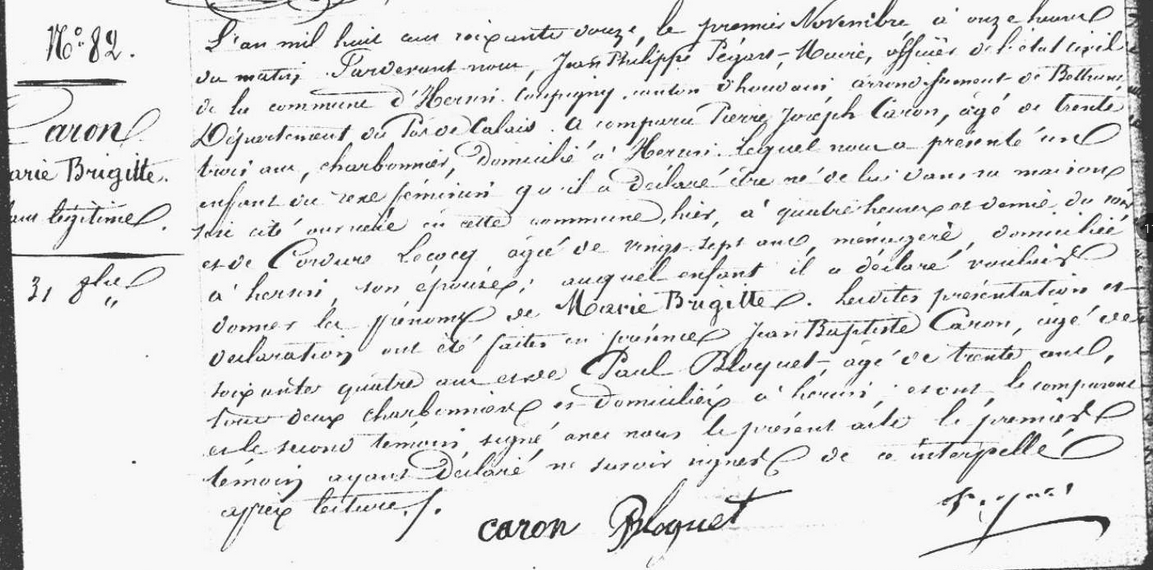 N° 82.
Caron
Marie Brigitte.
légitime.
31 8bre
L'an mil huit cent soixante douze, le premier Novembre à onze heures
du matin Pardevant nous, Jean Philippe Pégart, Maire, officier de l'état civil
de la commune d'Hersin-Coupigny, canton d'houdain arrondissement de Béthune
Département du Pas de Calais. A comparu Pierre Joseph Caron, âgé de trente
trois ans, charbonnier, domicilié à Hersin. Lequel nous a présenté un
enfant du sexe féminin qu'il a déclaré être né de lui dans sa maison
sise cité en cette commune, hier, à quatre heures et demie du soir
et de Cordule Lecocq âgée de vingt-sept ans, ménagère, domiciliée
à hersin, son épouse; auquel enfant il a déclaré vouloir
donner les prénoms de Marie Brigitte. Lesdites présentation et
déclaration ont été faites en présence Jean Baptiste Caron, âgé de
soixante quatre ans et de Paul Bloquet âgé de trente ans,
tous deux charbonniers et domiciliés à hersin; et ont le comparant
et le second témoin signé avec nous le présent acte le premier
témoin ayant Déclaré ne savoir signer de ce interpellé
après lecture./.
caron Bloquet